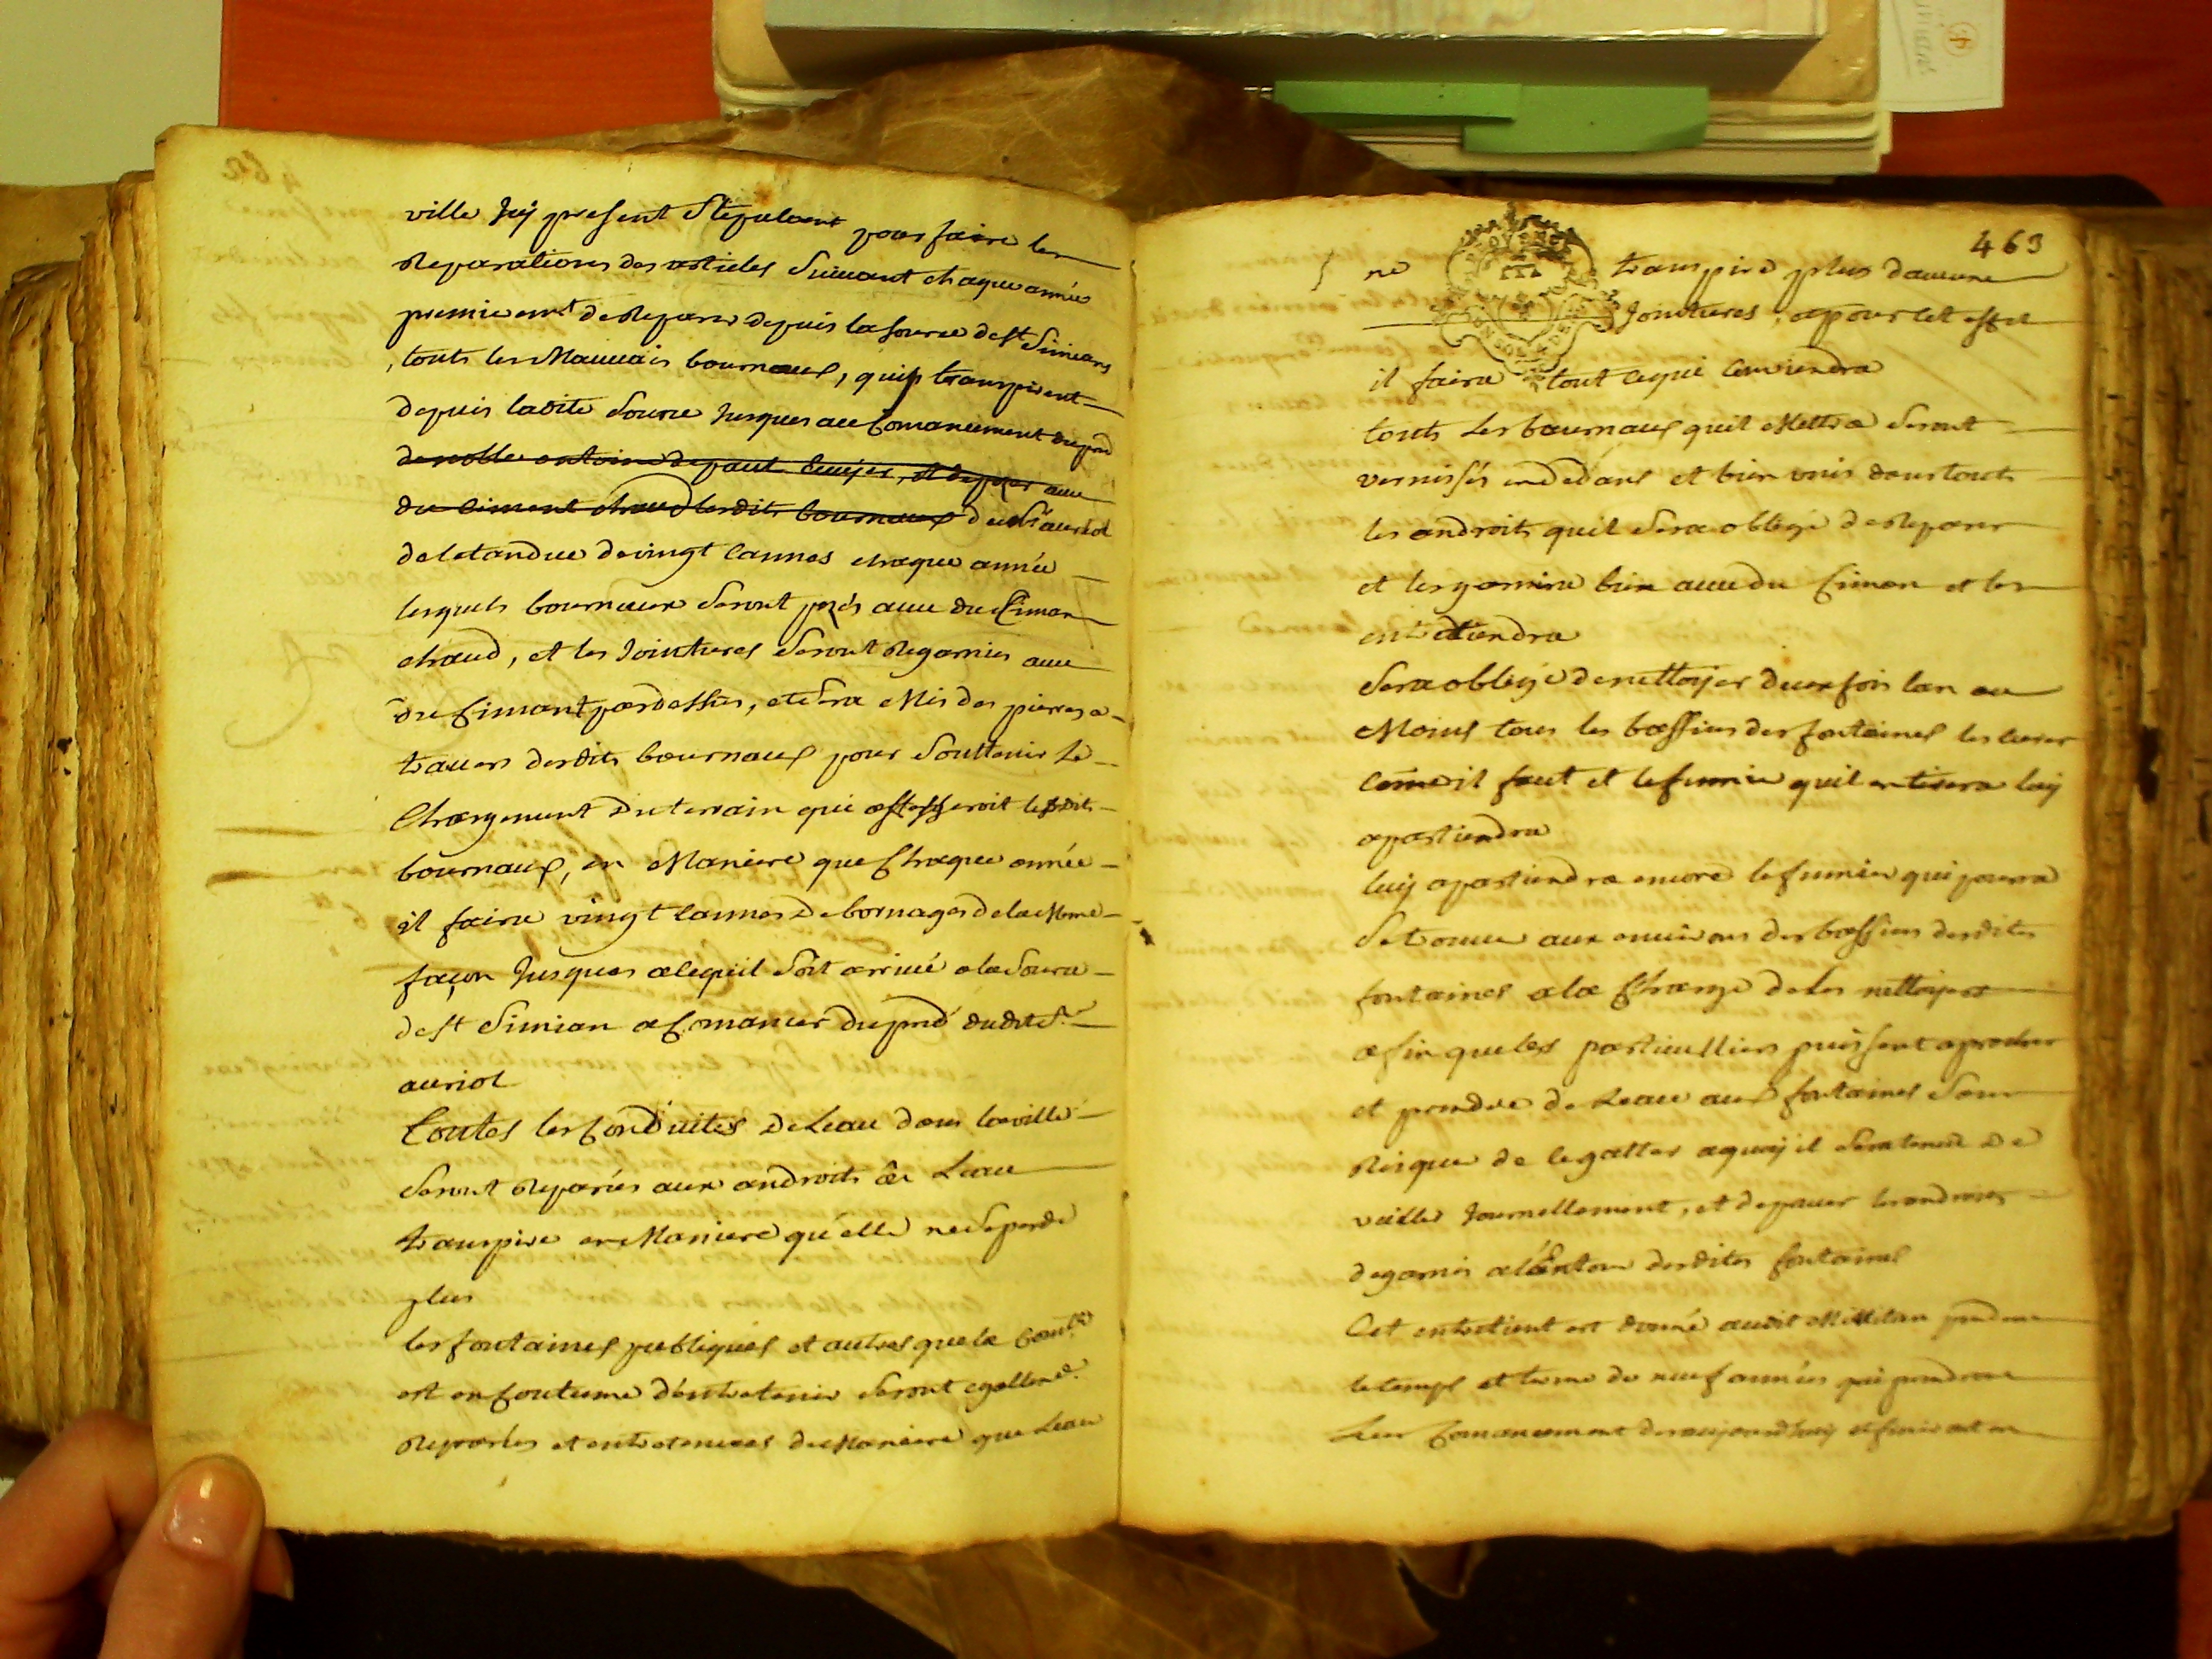 ville Icy present Stipulant pour faire les
Reparations des articles Suivant chaque année
premierem.t de Reparer depuis la source de S.t Simian
touts les Mauvais bournaux, qui transpirent
depuis ladite Source Jusques au Comancement du pred
de noble antoine depaul Ecuyer, et de pozer avec
du Ciment chaud lesdits bournaux du S.r auriol
de letandue de vingt Cannes chaque année
lesquels bournaux Seront pozés avec du Ciman
chaud, et les Jointures Seront Regarnies avec
du Cimant pardessus, et Sera Mis des pierres a
travers desdits bournaux pour Souttenir Le
Chargement du terrain qui lesdits
bournaux, en Maniere que Chaque année
il faira vingt Cannes de bornages de la Meme
façon Jusques a lequil Soit arrivé a la Source
de S.t Simian a Comancer du pred dudit S.r
auriol
Toutes les Conduites de Leau dans la ville
Seront Reparées aux androits où Leau
transpire en Maniere qu'elle ne Se perde
plus
les fontaines publiques et autres que la Com.té
est en Coutume d'entretenir Seront egallem.t
Reparées et entretenues de Maniere que Leau
463
ne transpire plus daucune
Jointures, a pour cet effet
il faira tout cequi Conviendra
touts Les bournaux quil Mettra Seront
vernissés endedans et bien unis dans touts
les androits quil Sera obligé de Reparer
et les garnira bien avec du Ciman et les
entretiendra
Sera obligé de nettoyer deux fois lan au
Moins tous les bassins des fontaines les curer
Come il faut et le fumier quil en tirera luy
apartiendra
luy apartiendra encore le fumier qui pourra
Se trouver aux environs des bassins desdites
fontaines a la Charge de les nettoyer
afin que les particulliers puissent aprocher
et prendre de Leau aux fontaines Sans
Risque de le gatter aquoy il Sera tenu de
veiller Journellement, et de paver les androits
degarnis a lentour desdites fontaines
Cet entretient est donné audit Millian pendant
le temps et terme de neuf années qui prendront
Leur Comancement des aujourdhuy et finiront en